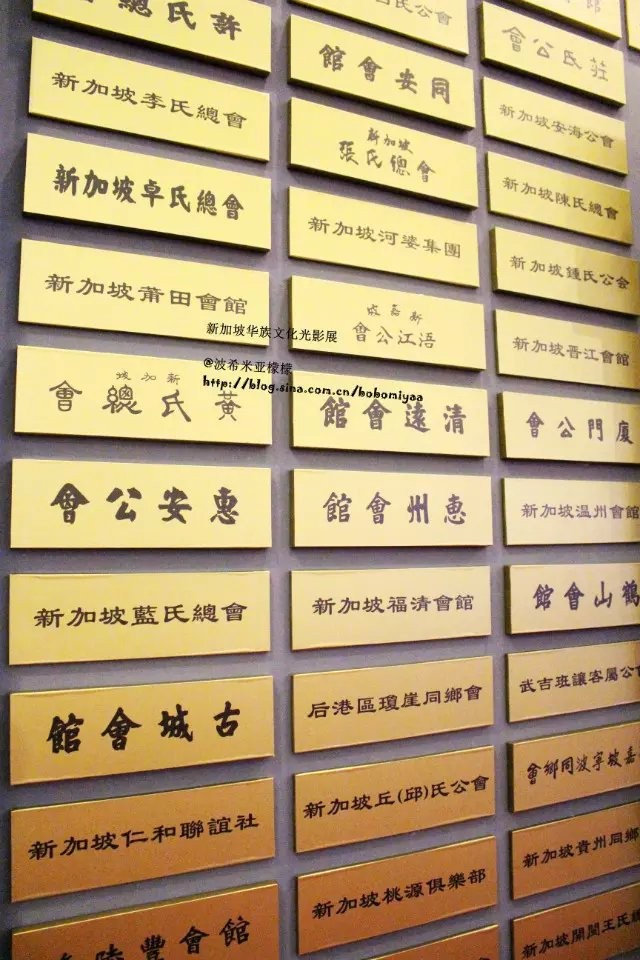 許氏總會
新加坡李氏總會
新加坡卓氏總會
新加坡莆田會館
新加坡
黃氏總會
惠安公會
新加坡藍氏總會
古城會館
新加坡仁和聯誼社
陸豐會館
氏公會
同安會館
新加坡
張氏總會
新加坡河婆集團
新嘉坡
浯江公會
清遠會館
惠州會館
新加坡福清會館
后港區瓊崖同鄉會
新加坡丘(邱)氏公會
新加坡桃源俱樂部
莊氏公會
新加坡安海公會
新加坡陳氏總會
新加坡鍾氏公会
新加坡晋江會館
廈門公會
新加坡温州會館
鶴山會館
武吉班讓客屬公會
嘉坡寧波同鄉會
新加坡貴州同鄉
新加坡開閩王氏總
新加坡华族文化光影展
@波希米亚檬檬
http://blog.sina.com.cn/bobomiyaa